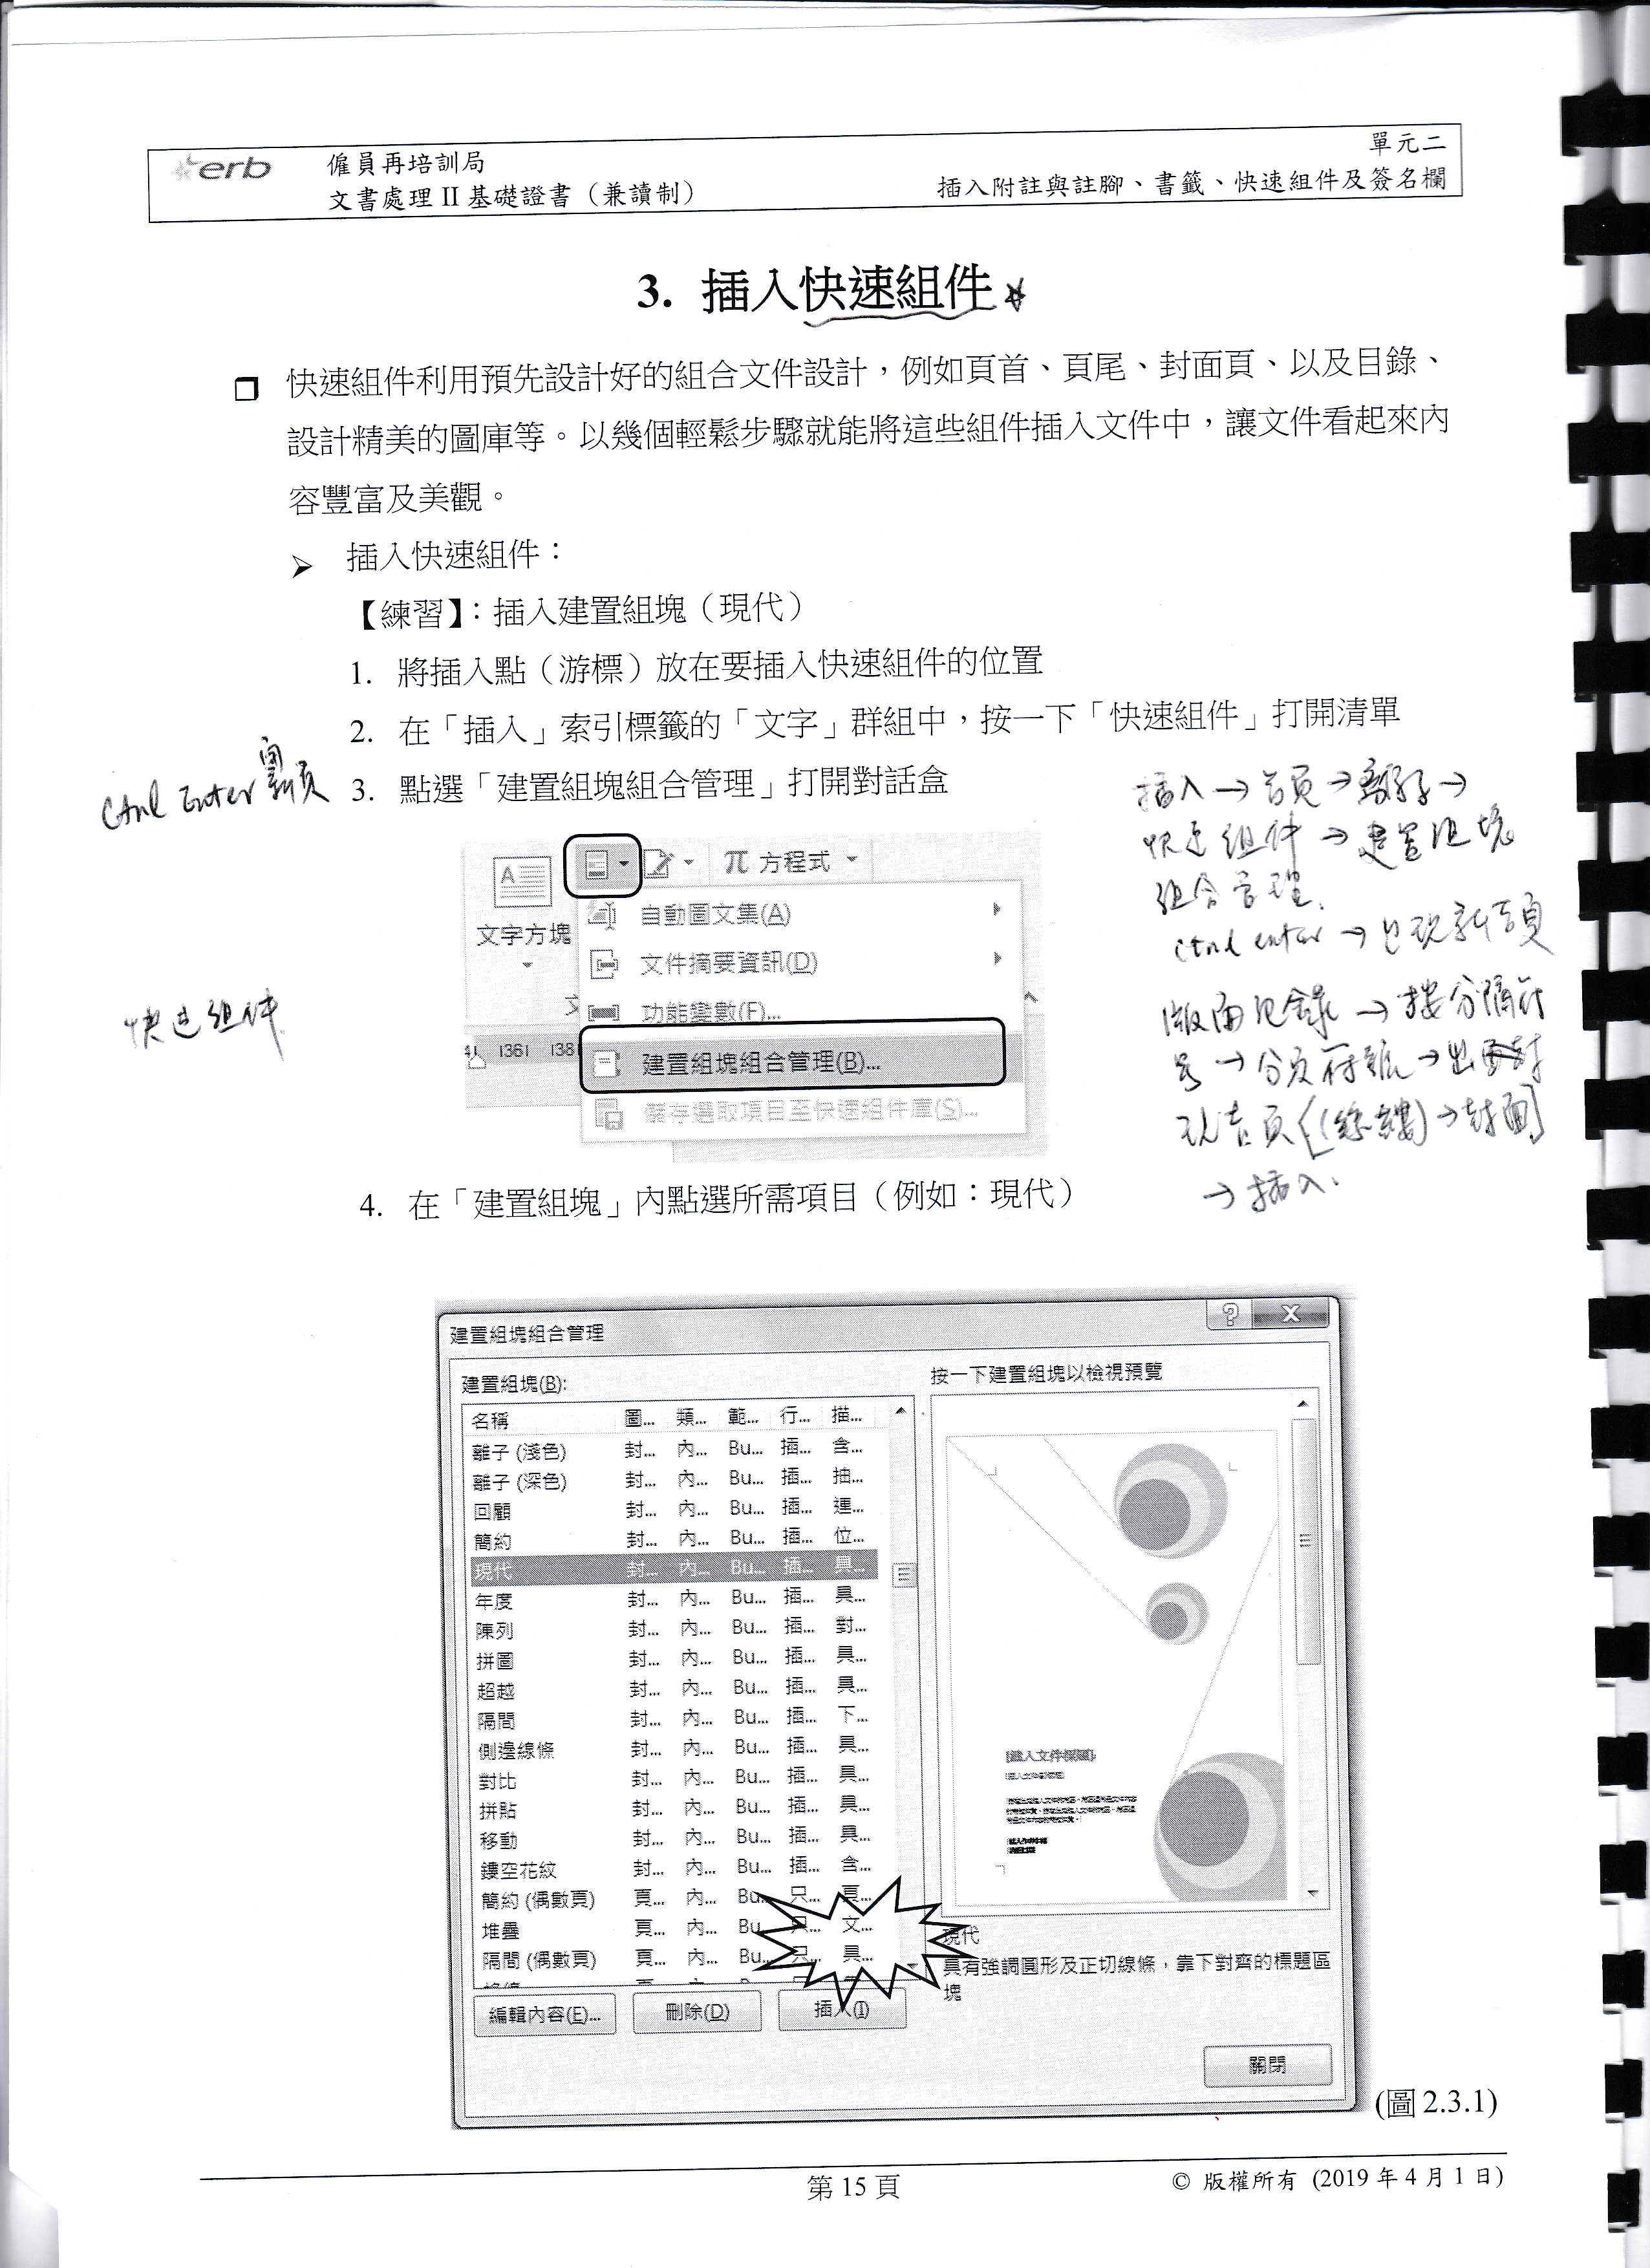 erb
僱員再培訓局
單元二
文書處理 II 基礎證書（兼讀制）
插入附註與註腳、書籤、快速組件及簽名欄
3. 插入快速組件
快速組件利用預先設計好的組合文件設計，例如頁首、頁尾、封面頁、以及目錄、
設計精美的圖庫等。以幾個輕鬆步驟就能將這些組件插入文件中，讓文件看起來內
容豐富及美觀。
插入快速組件：
【練習】：插入建置組塊（現代）
1. 將插入點（游標）放在要插入快速組件的位置
2. 在「插入」索引標籤的「文字」群組中，按一下「快速組件」打開清單
3. 點選「建置組塊組合管理」打開對話盒
Ctrl Enter
快速組件
插入 → 首頁 → 離子 →
快速組件 → 建置組塊
組合管理.
Ctrl enter → 出現新頁
→ 插入.
文字方塊
方程式
自動圖文集(A)
文件摘要資訊(D)
功能變數(F)...
|36| |38|
建置組塊組合管理(B)...
儲存選取項目至快速組件庫(S)...
4. 在「建置組塊」內點選所需項目（例如：現代）
建置組塊組合管理
建置組塊(B):
按一下建置組塊以檢視預覽
名稱 圖... 類... 範... 行... 描...
離子 (淺色) 封... 內... Bu... 插... 含...
離子 (深色) 封... 內... Bu... 插... 抽...
回顧 封... 內... Bu... 插... 連...
簡約 封... 內... Bu... 插... 位...
現代 封... 內... Bu... 插... 具...
年度 封... 內... Bu... 插... 具...
陳列 封... 內... Bu... 插... 對...
拼圖 封... 內... Bu... 插... 具...
超越 封... 內... Bu... 插... 具...
隔間 封... 內... Bu... 插... 下...
側邊線條 封... 內... Bu... 插... 具...
對比 封... 內... Bu... 插... 具...
拼貼 封... 內... Bu... 插... 具...
移動 封... 內... Bu... 插... 具...
鏤空花紋 封... 內... Bu... 插... 含...
簡約 (偶數頁) 頁... 內... Bu... 只... 頁...
堆疊 頁... 內... Bu... 只... 文...
隔間 (偶數頁) 頁... 內... Bu... 只... 具...
[鍵入文件標題]
[鍵入文件副標題]
現代
具有強調圓形及正切線條，靠下對齊的標題區
塊
編輯內容(E)... 刪除(D) 插入(I)
關閉
(圖 2.3.1)
第 15 頁
© 版權所有 (2019 年 4 月 1 日)